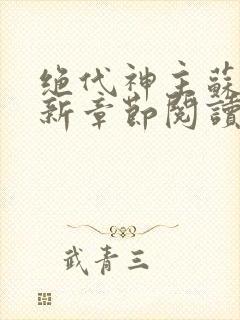 绝代神主蘇
新章節閱讀
武青三